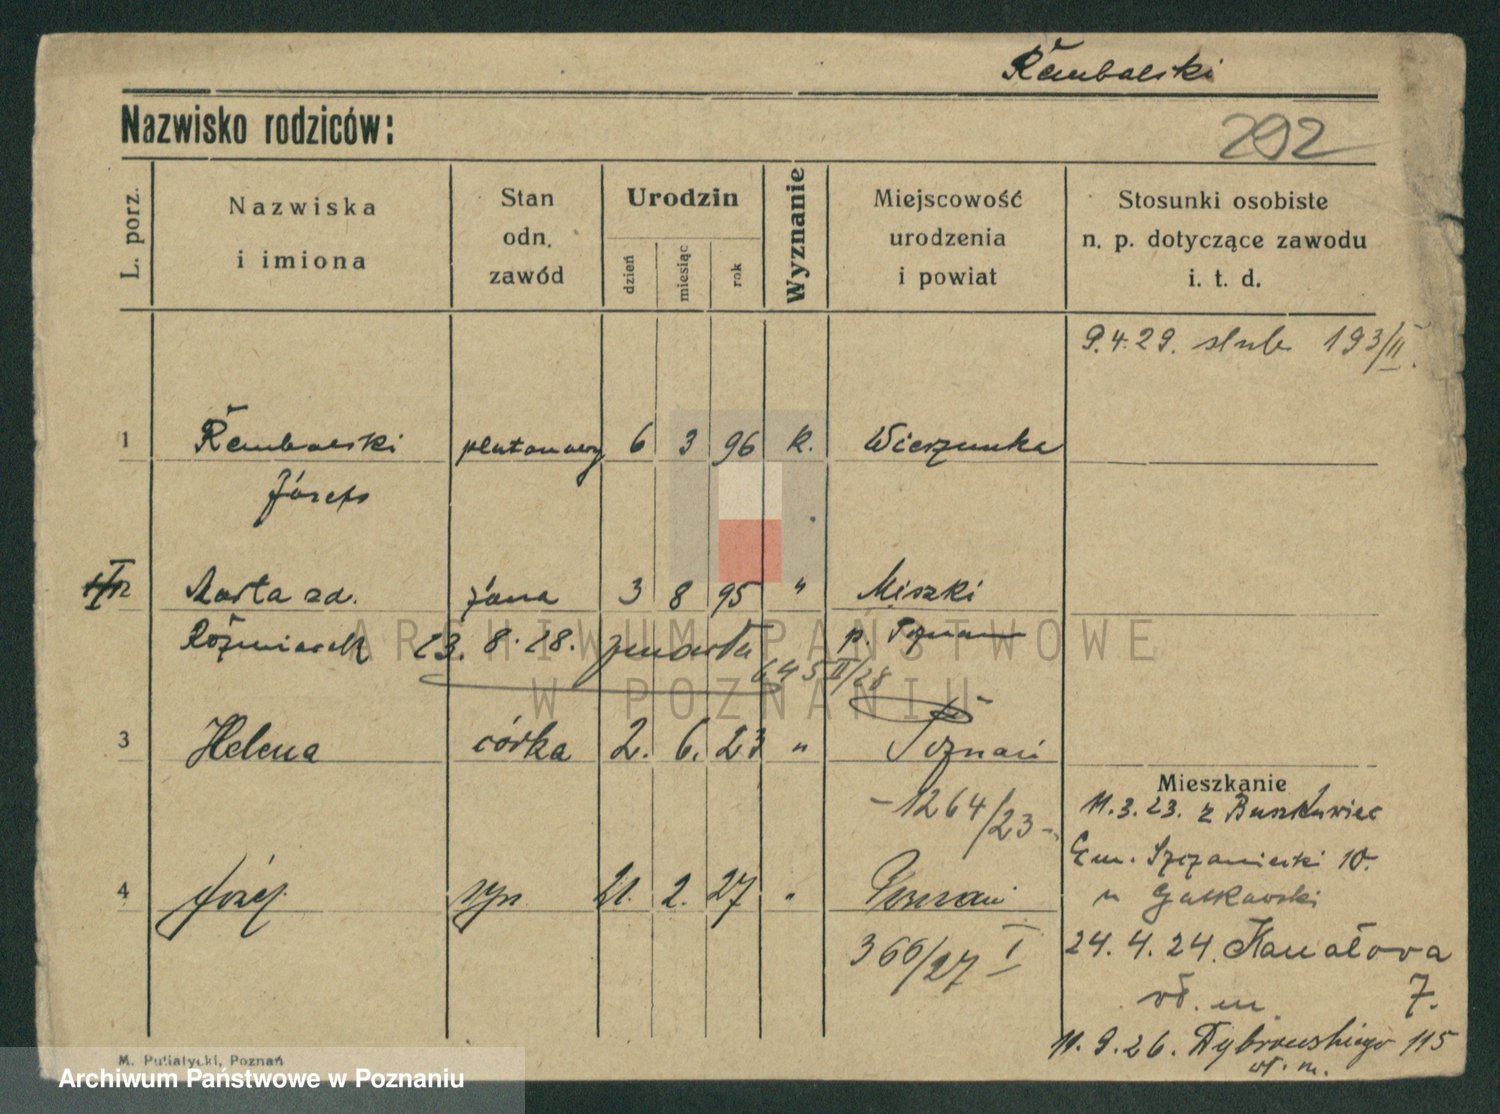 Rembalski
Nazwisko rodziców:
292
L. porz.
Nazwiska
i imiona
Stan
odn.
zawód
Urodzin
dzień
miesiąc
rok
Wyznanie
Miejscowość
urodzenia
i powiat
Stosunki osobiste
n. p. dotyczące zawodu
i. t. d.
9.4.29. slub 193/II.
1 Rembalski plutonowy 6 3 96 k. Wierzonka
Józef
Marta zd. żona 3 8 95 " Miszki
13. 8. 28. zmarła p. Poznań
645 II/28
3 Helena córka 2. 6. 23 " Poznań
-1264/23-
4 Józef syn 21. 2. 27 " Poznań
366/27 I
Mieszkanie
11.3.23. z
Em. Szczaniecki 10.
u
24. 4. 24. Kanałowa
wł. m. 7.
11. 9. 26. Dąbrowskiego 115
wł. m.
M. Putiatycki, Poznań
ARCHIWUM PAŃSTWOWE
W POZNANIU
Archiwum Państwowe w Poznaniu